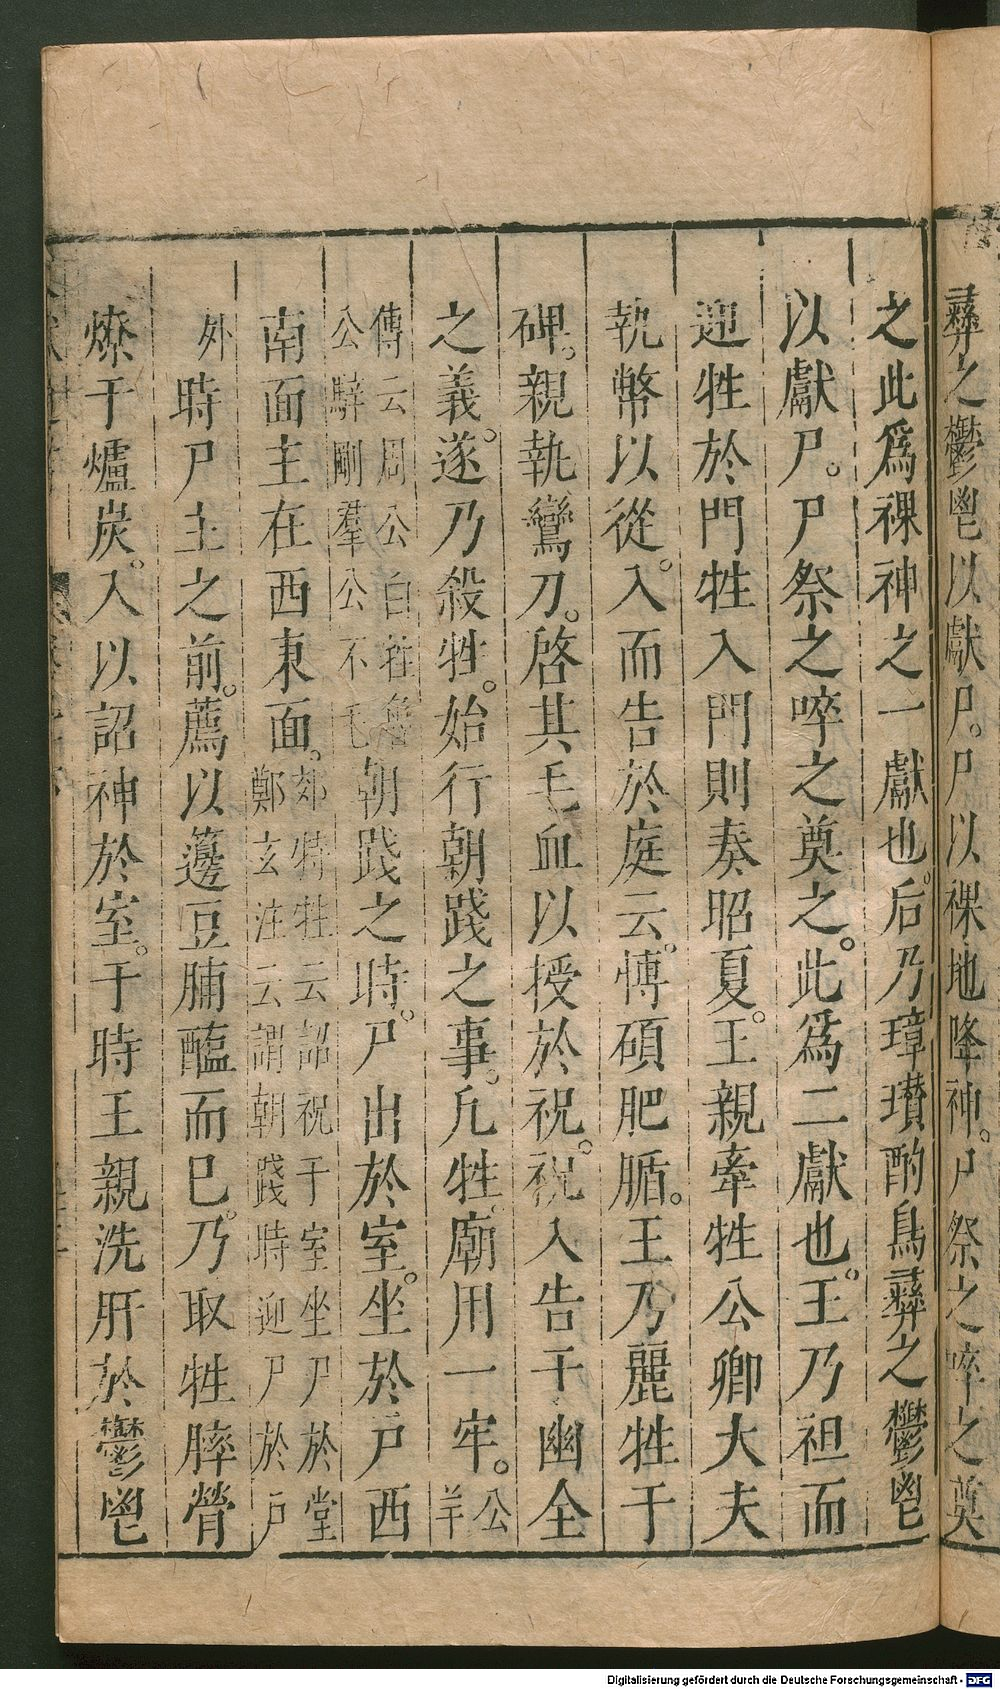 彝之鬱鬯以獻尸。尸以祼地降神。尸祭之啐之奠
之此爲祼神之一獻也。后乃璋瓚酌鳥彝之鬱鬯
以獻尸。尸祭之啐之奠之。此爲二獻也。王乃袒而
迎牲於門牲入門則奏昭夏。王親牽牲公卿大夫
執幣以從。入而告於庭云。博碩肥腯。王乃麗牲于
碑。親執鸞刀。啓其毛血以授於祝。祝入告于幽全
之義。遂乃殺牲。始行朝踐之事。凡牲廟用一牢。公
羊
傳云周公白牡魯
公騂剛羣公不毛朝踐之時。尸出於室。坐於戸西
南面主在西東面。郊特牲云詔祝于室坐尸於堂
鄭玄注云謂朝踐時迎尸於戸
外
時尸主之前。薦以籩豆脯醢而巳。乃取牲膟膋
燎于爐炭。入以詔神於室。于時王親洗肝於鬱鬯
Digitalisierung gefördert durch die Deutsche Forschungsgemeinschaft - DFG